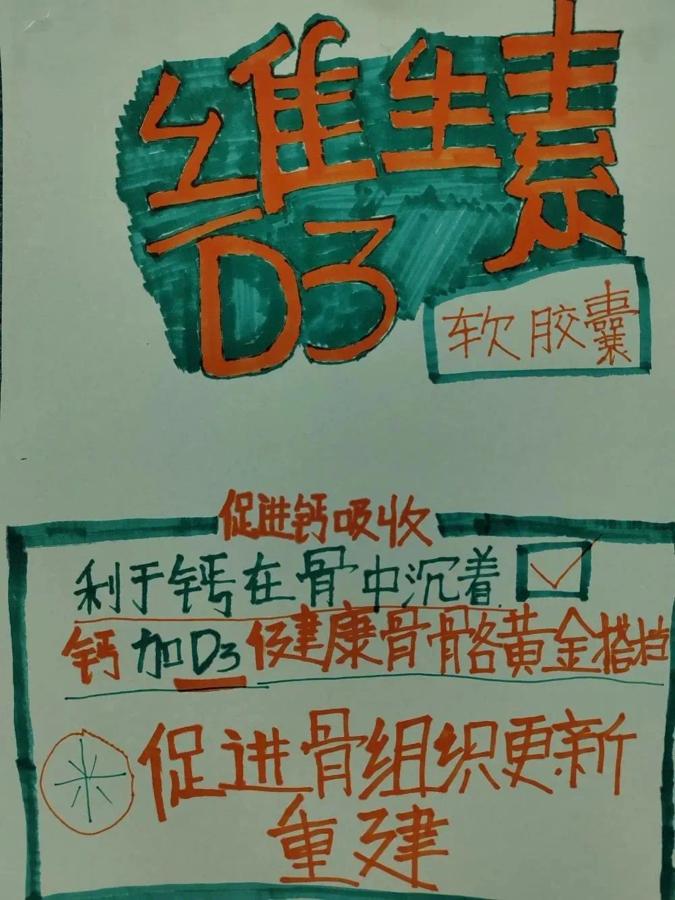 维生素
D3
软胶囊
促进钙吸收
利于钙在骨中沉着
钙加D3健康骨骼黄金搭档
促进骨组织更新
重建